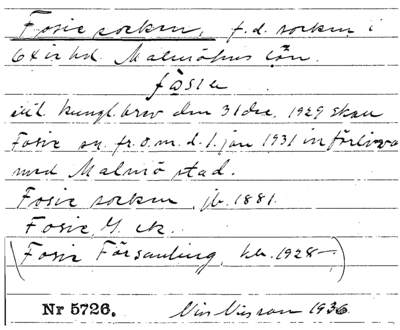 Fosie socken, f.d. socken i
Oxie hd. Malmöhus län.
fɷsıe
enl. kungl. brev den 31 dec. 1929 skall
Fosie sn. fr.o.m. d. 1. jan 1931 införlivas
med Malmö stad.
Fosie socken, jb. 1881.
Fosie, G. ek.
(Fosie Församling, kbr. 1928—)
Nr 5726. Nils Nilsson 1936